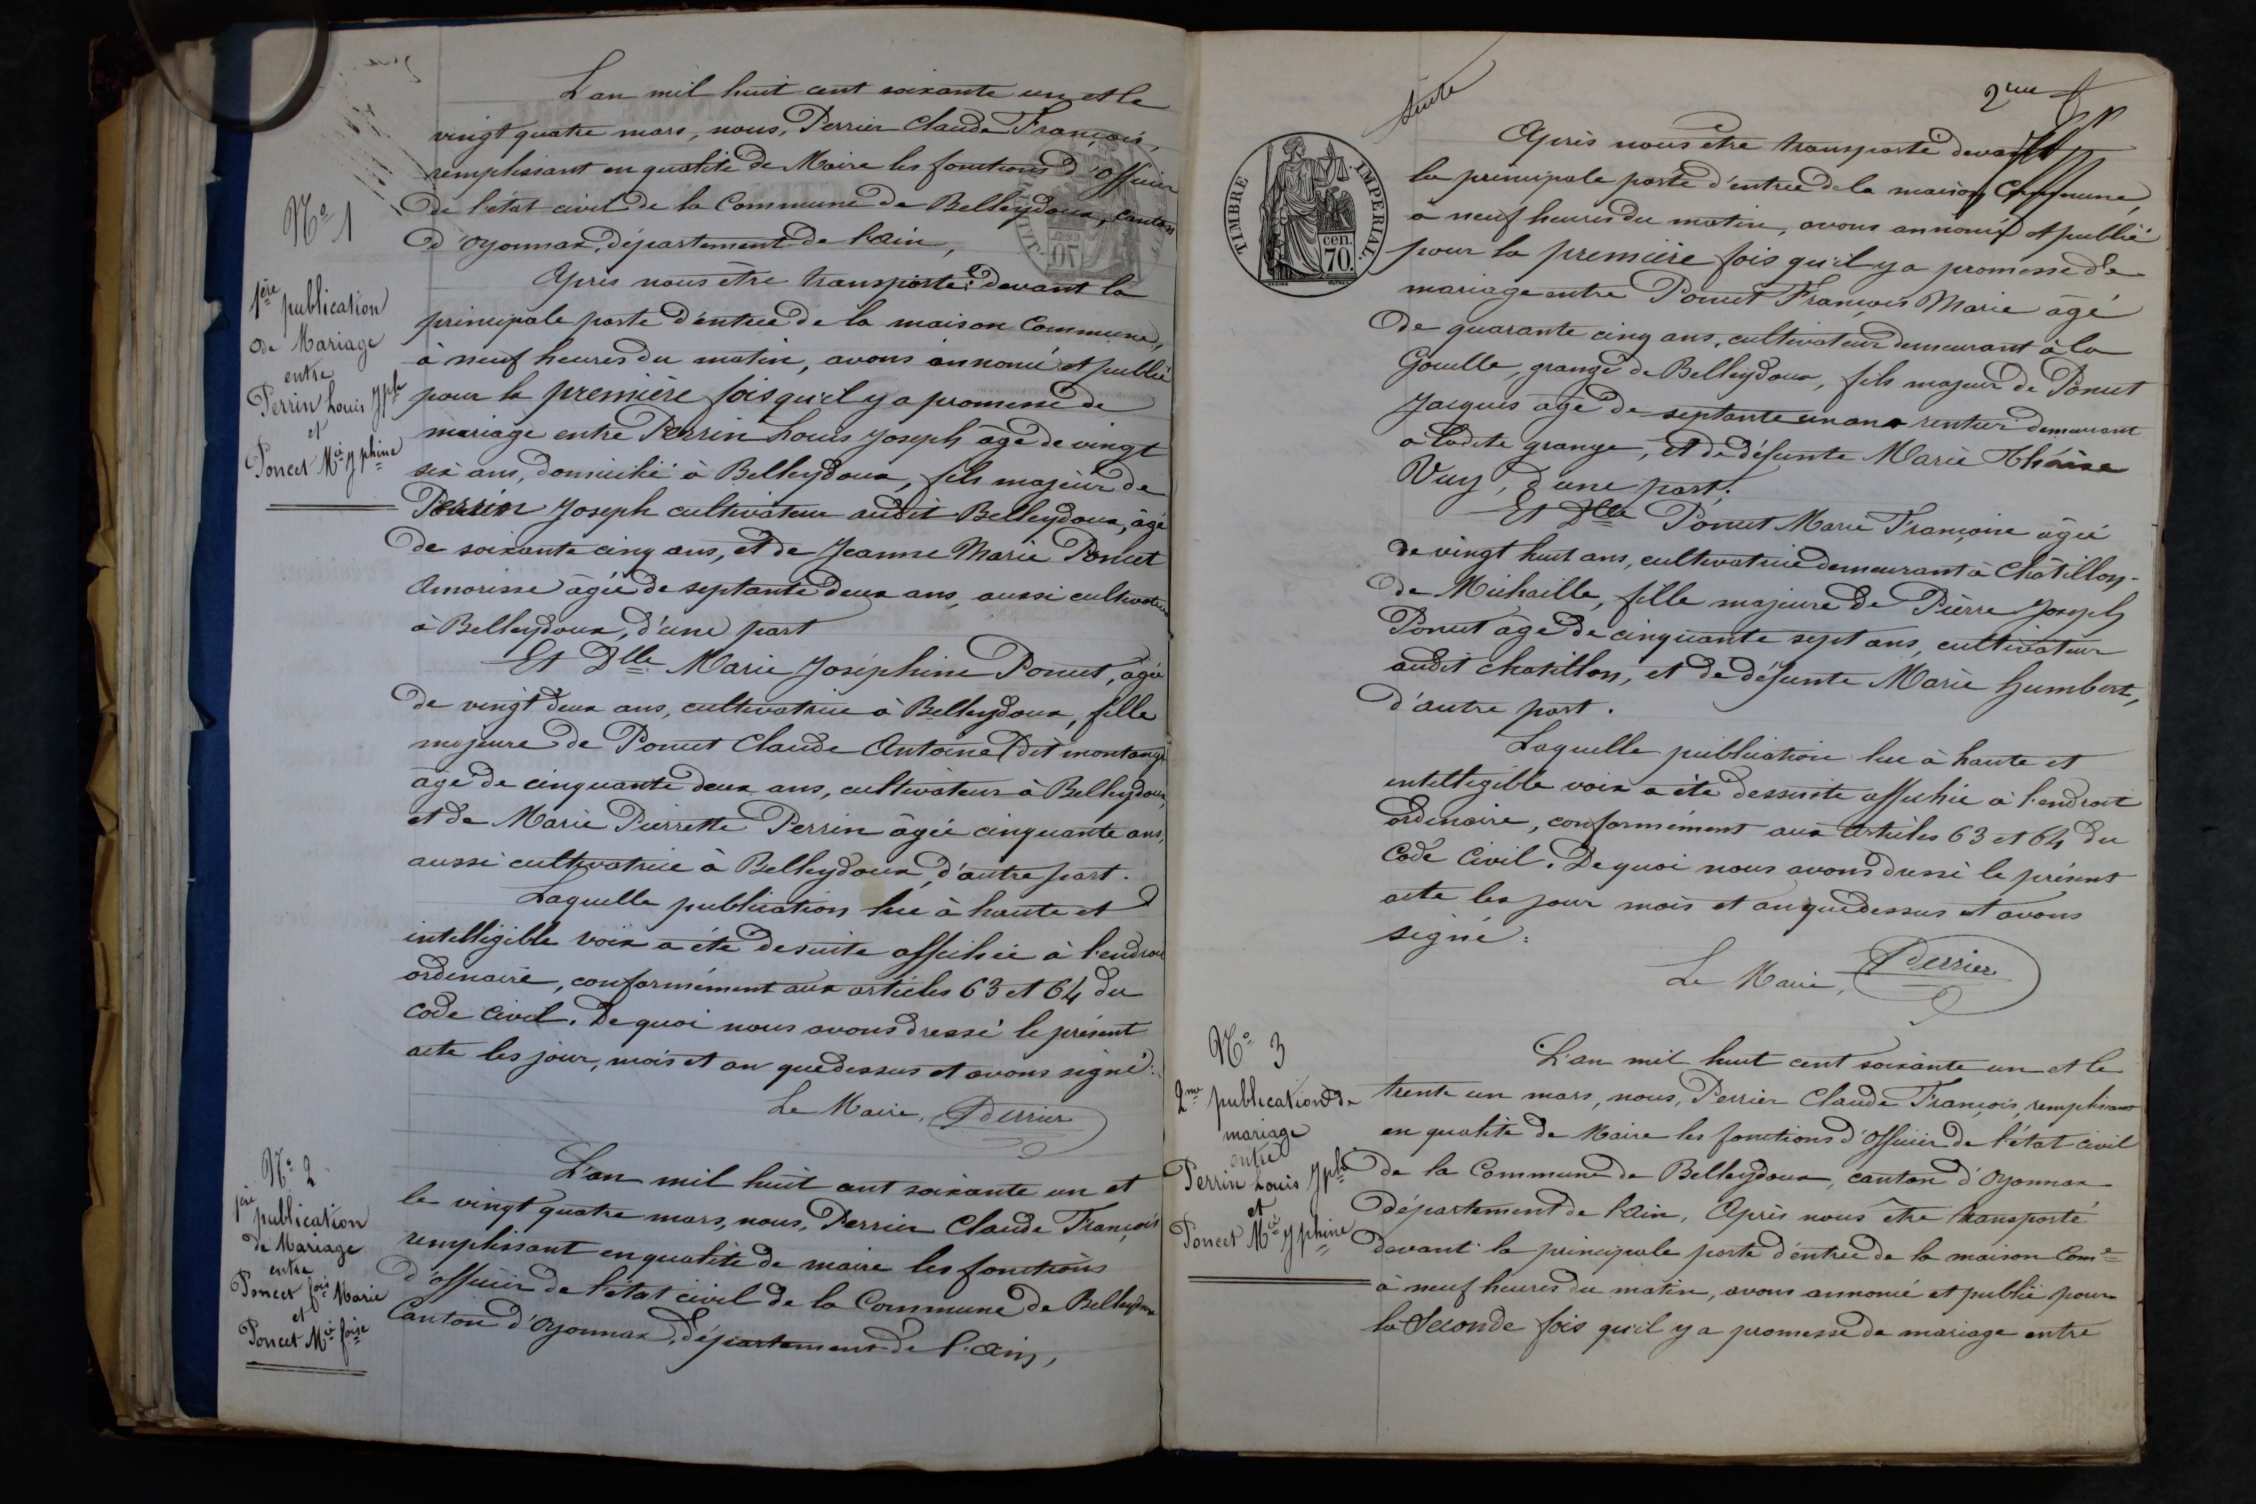 L'an mil huit cent soixante un et le
vingt quatre mars, nous, Perrier Claude François,
remplissant en qualité de Maire les fonctions d'officier
de l'état civil de la Commune de Belleydoux, canton
d'Oyonnax, département de l'Ain,
Après nous être transporté devant la
principale porte d'entrée de la maison Commune,
à neuf heures du matin, avons annoncé et publié
pour la première fois qu'il y a promesse de
mariage entre Perrin Louis Joseph âgé de vingt
six ans, domicilié à Belleydoux, fils majeur de
Perrin Joseph cultivateur audit Belleydoux, âgé
de soixante cinq ans, et de Jeanne Marie Poncet
Amorisse âgée de septante deux ans, aussi cultivateur
à Belleydoux, d'une part
Et Dlle Marie Joséphine Poncet, âgée
de vingt deux ans, cultivatrice à Belleydoux, fille
majeure de Poncet Claude Antoine dit montange
âgé de cinquante deux ans, cultivateur à Belleydoux,
et de Marie Pierrette Perrin âgée cinquante ans,
aussi cultivatrice à Belleydoux, d'autre part.
Laquelle publication lue à haute et
intelligible voix a été de suite affichée à l'endroit
ordenaire, conformément aux articles 63 et 64 du
Code Civil. De quoi nous avons dressé le présent
acte les jour, mois et an que dessus et avons signé :
Le Maire, Perrier
N° 1
1ère publication
de Mariage
entre
Perrin Louis Jph
et
Poncet Mie Jphine
L'an mil huit cent soixante un et
le vingt quatre mars, nous, Perrier Claude François
remplissant en qualité de maire les fonctions
d'officier de l'état civil de la Commune de Belleydoux
Canton d'Oyonnax, département de l'Ain,
N° 2
1ère
publication
de Mariage
entre
Poncet fois Marie
et
Poncet Mie foise
suite
2me
TIMBRE IMPERIAL
70 cen.
Après nous être transporté devant
la principale porte d'entrée de la maison Commune,
à neuf heures du matin, avons annoncé et publié
pour la première fois qu'il y a promesse de
mariage entre Poncet François Marie âgé
de quarante cinq ans, cultivateur demeurant à la
Gouille, grange de Belleydoux, fils majeur de Poncet
Jacques âgé de septante un ans rentier demeurant
a ladite grange, et de défunte Marie Thérèse
Vuy, d'une part;
Et Dlle Poncet Marie Françoise âgée
de vingt huit ans, cultivatrice demeurant à Châtillon-
de Michaille, fille majeure de Pierre Joseph
Poncet âgé de cinquante sept ans, cultivateur
audit Chatillon, et de défunte Marie Humbert,
d'autre part.
Laquelle publication lue à haute et
intelligible voix a été dessuite affichée à l'endroit
ordenaire, conformément aux articles 63 et 64 du
Code Civil. De quoi nous avons dressé le présent
acte les jour mois et an que dessus et avons
signé :
Le Maire, Perrier
N° 3
2me publication de
mariage
entre
Perrin Louis Jph
et
Poncet Mie Jphine
L'an mil huit cent soixante un et le
trente un mars, nous, Perrier Claude François, remplissant
en qualité de Maire les fonctions d'officier de l'état civil
de la Commune de Belleydoux, canton d'Oyonnax
département de l'Ain, Après nous être transporté
devant la principale porte d'entrée de la maison Come
à neuf heures du matin, avons annoncé et publié pour
la Seconde fois qu'il y a promesse de mariage entre